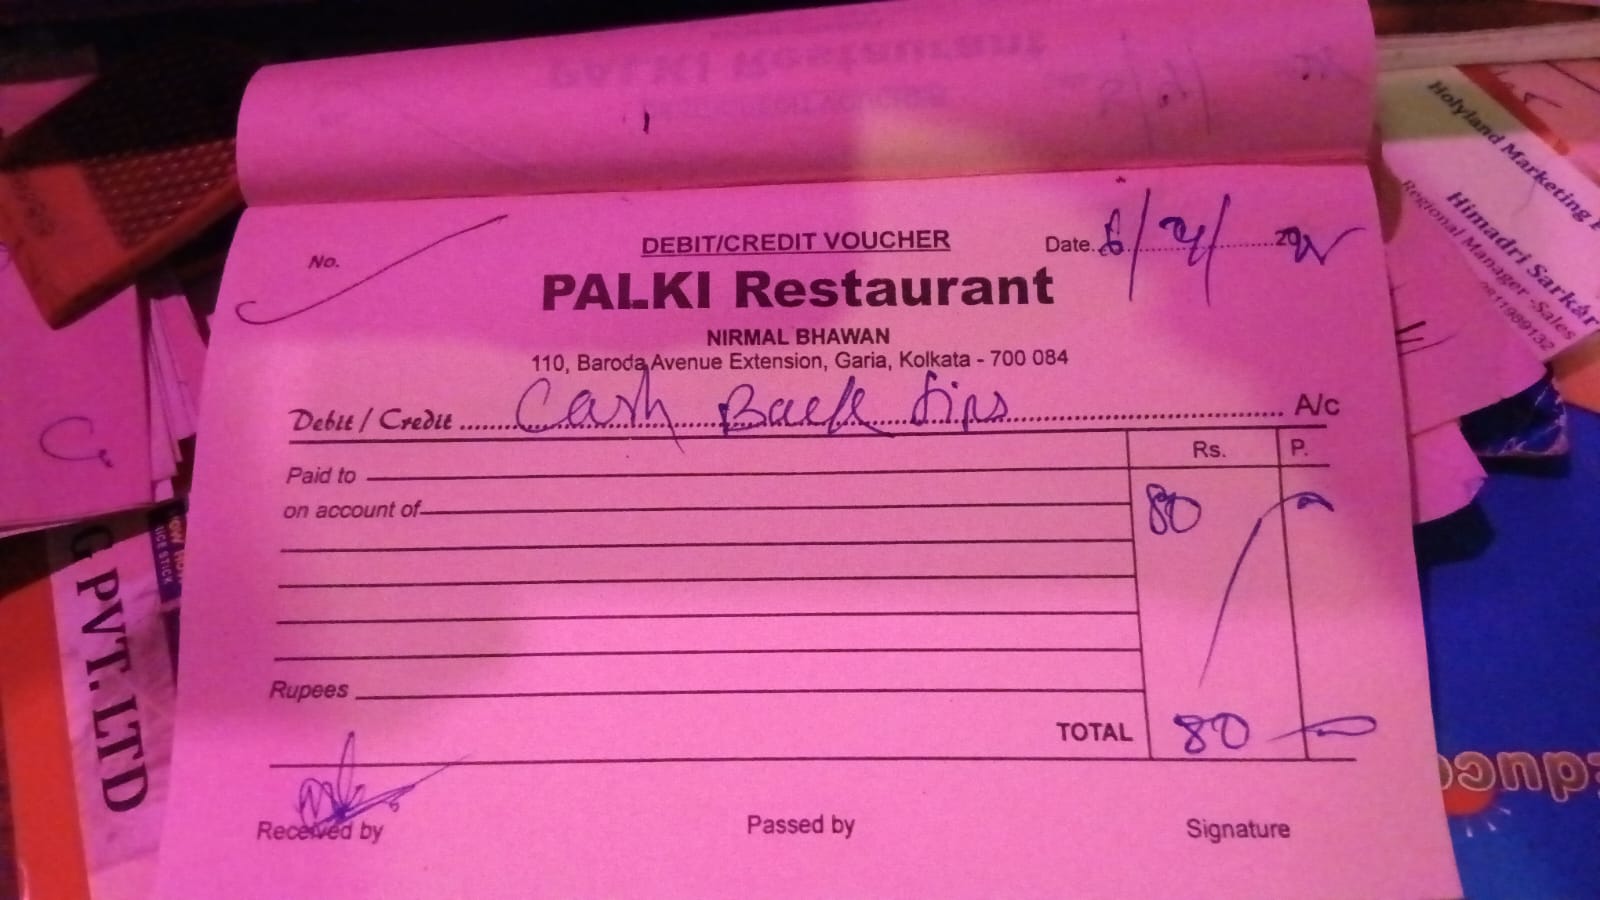 DEBIT/CREDIT VOUCHER
No.
Date 6/4/2022
PALKI Restaurant
NIRMAL BHAWAN
110, Baroda Avenue Extension, Garia, Kolkata - 700 084
Debit / Credit Cash Back Tips A/c
Rs. P.
Paid to
on account of 80
Rupees
TOTAL 80
Received by Passed by Signature
Holyland Marketing
Himadri Sarkar
Regional Manager -Sales
G PVT. LTD